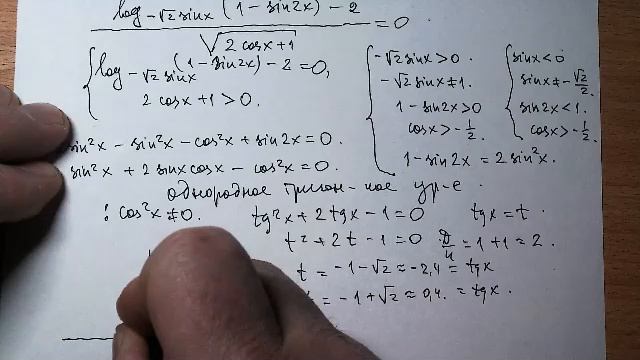 log_{-√2 sinx} (1 - sin2x) - 2
_______________ = 0.
√(2cosx+1)
{ log_{-√2 sinx} (1 - sin2x) - 2 = 0,
2 cosx + 1 > 0.
{ -√2 sinx > 0.
-√2 sinx ≠ 1.
1 - sin2x > 0
cosx > -1/2.
1 - sin2x = 2 sin²x.
{ sinx < 0
sinx ≠ -√2/2.
sin2x < 1.
cosx > -1/2.
sin²x - sin²x - cos²x + sin2x = 0.
sin²x + 2 sinx cosx - cos²x = 0.
однородное тригон-кое ур-е.
: cos²x ≠ 0. tg²x + 2tgx - 1 = 0 tgx = t.
t² + 2t - 1 = 0 D/4 = 1 + 1 = 2.
t = -1 - √2 ≈ -2,4 = tgx
= -1 + √2 ≈ 0,4. = tgx.